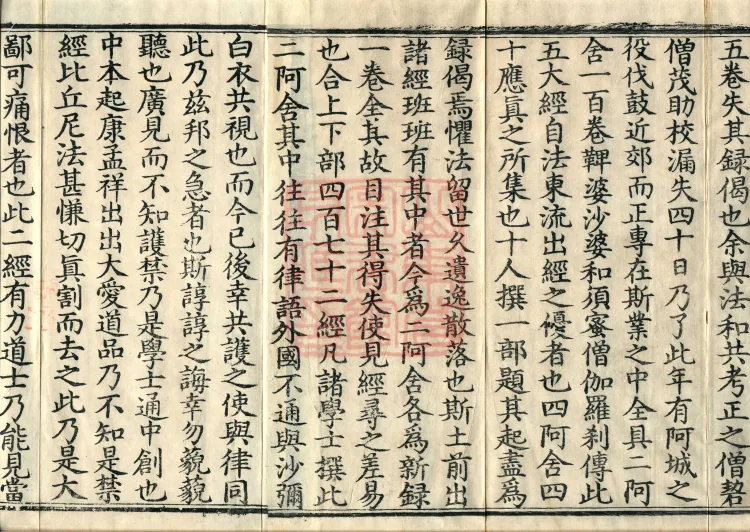 五卷失其録偈也余與法和共考正之僧䂮
僧茂助校漏失四十日乃了此年有阿城之
役伐鼓近郊而正專在斯業之中全具二阿
舍一百卷鞞婆沙婆和須蜜僧伽羅刹傳此
五大經自法東流出經之優者也四阿舍四
十應眞之所集也十人撰一部題其起盡爲
録偈焉懼法留世久遺逸散落也斯土前出
諸經班班有其中者今爲二阿舍各爲新録
一卷全其故目注其得失使見經尋之差易
也合上下部四百七十二經凡諸學士撰此
二阿舍其中往往有律語外國不通與沙彌
白衣共視也而今已後幸共護之使與律同
此乃兹邦之急者也斯諄諄之誨幸勿藐藐
聽也廣見而不知護禁乃是學士通中創也
中本起康孟祥出出大愛道品乃不知是禁
經比丘尼法甚慊切眞割而去之此乃是大
鄙可痛恨者也此二經有力道士乃能見當